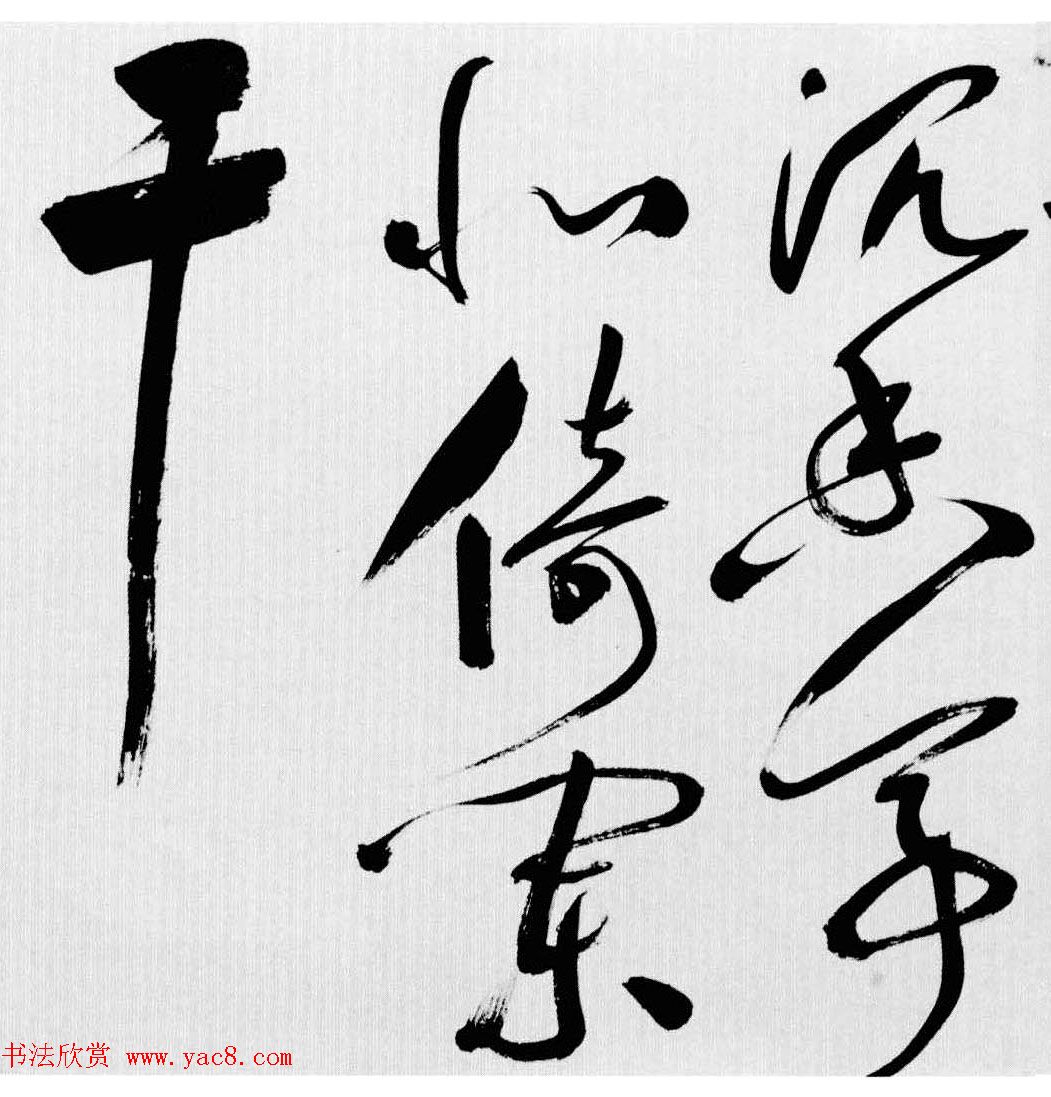 沉香亭
北倚阑
干
书法欣赏 www.yac8.com